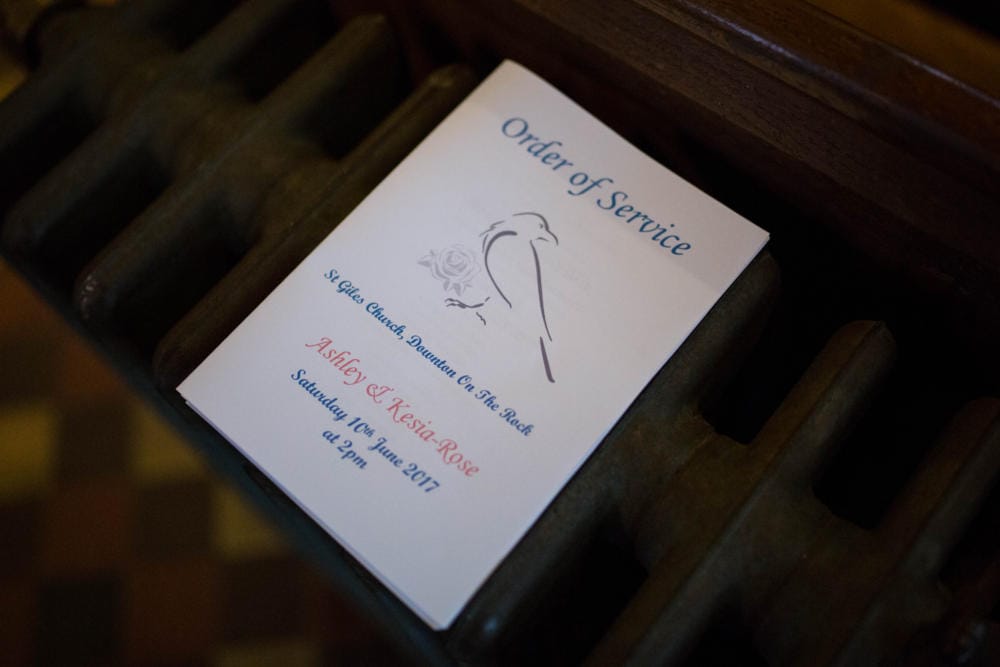 Order of Service
St Giles Church, Downton On The Rock
Ashley & Kesia-Rose
Saturday 10th June 2017
at 2pm